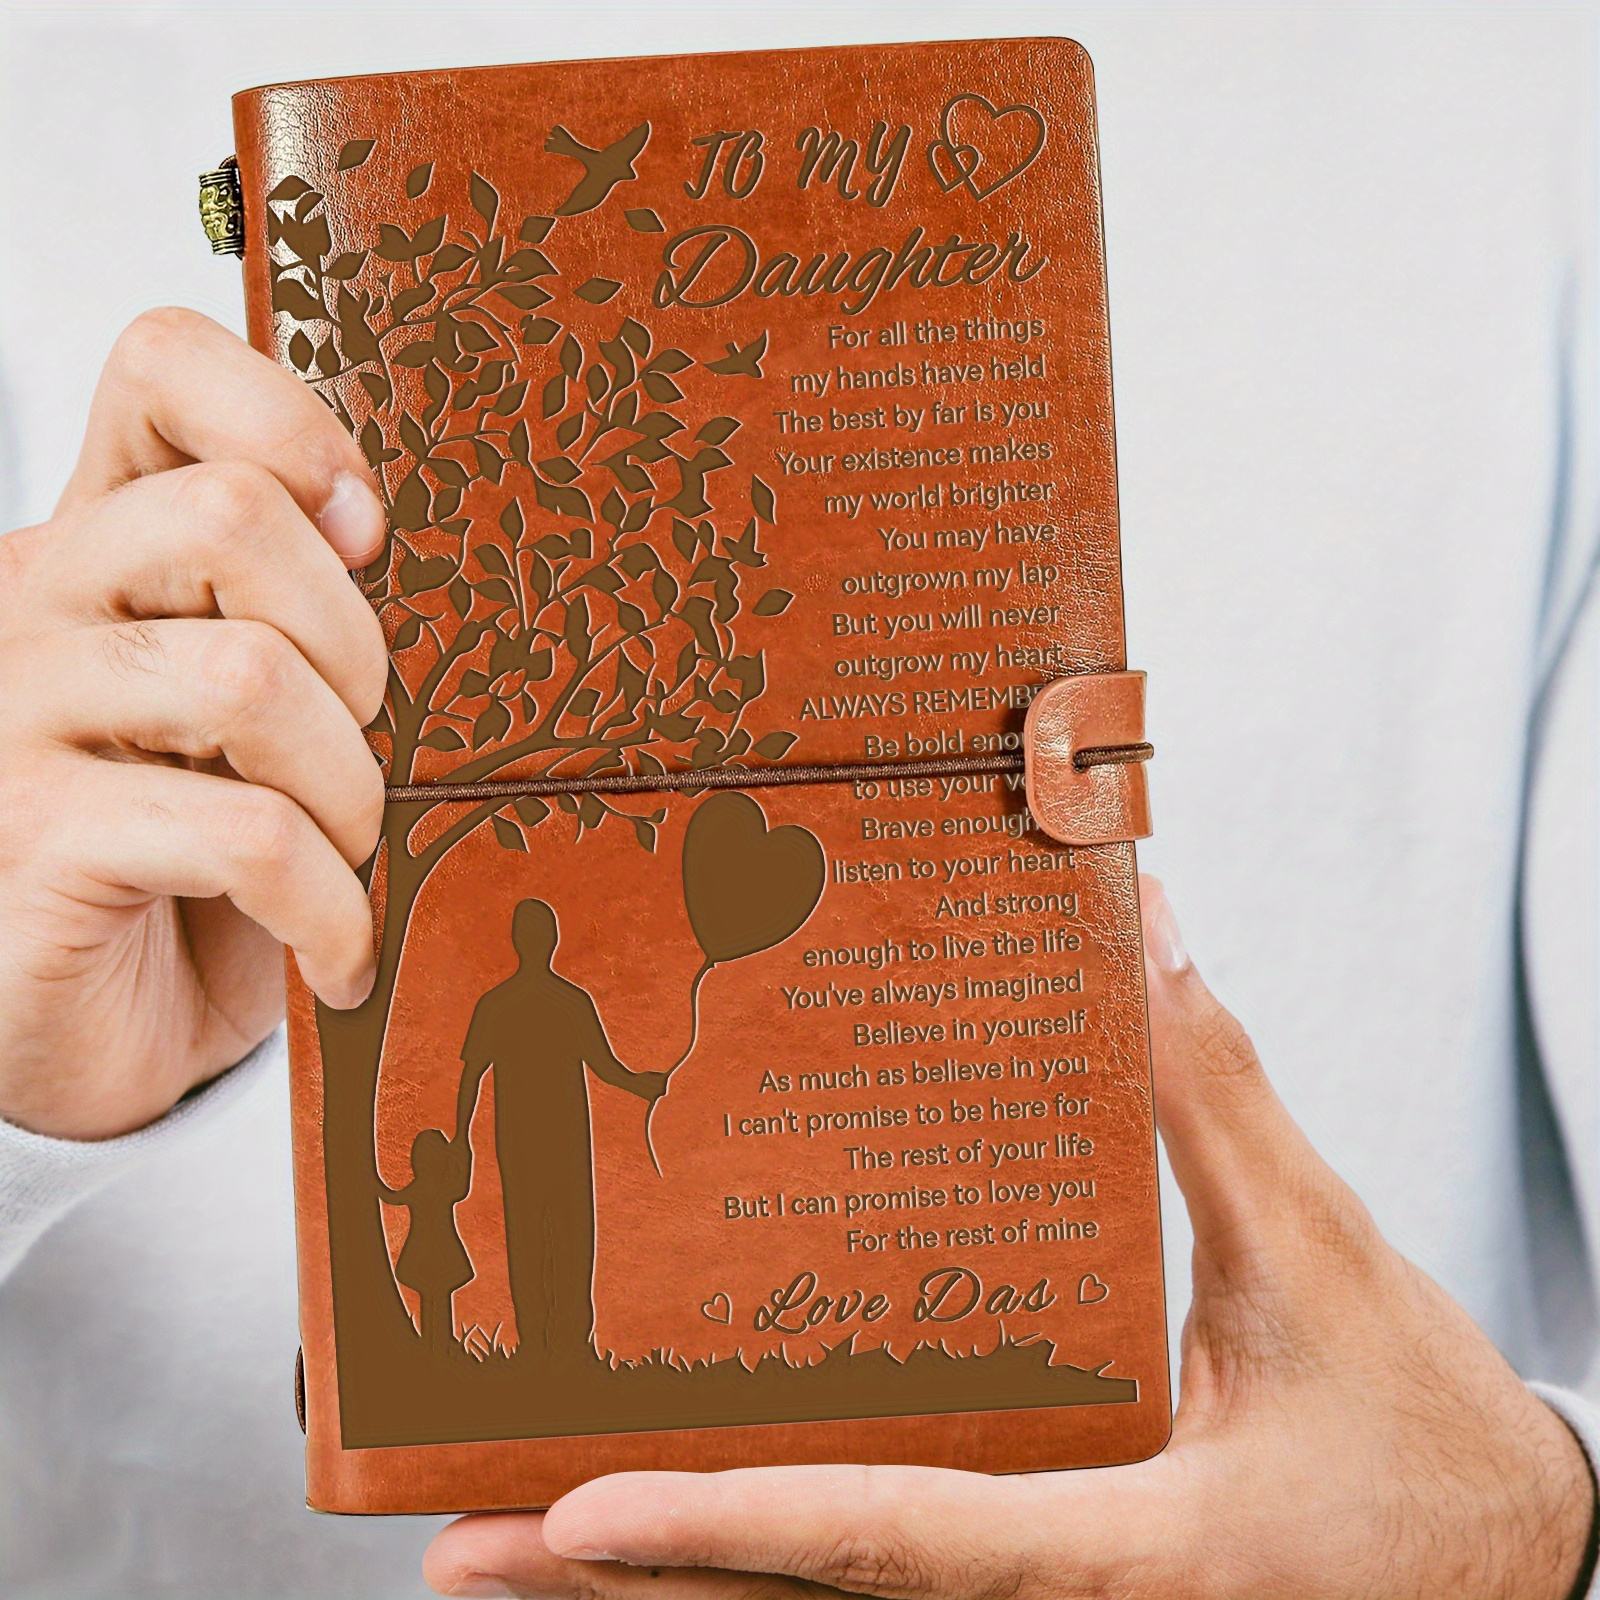 TO MY
Daughter
For all the things
my hands have held
The best by far is you
Your existence makes
my world brighter
You may have
outgrown my lap
But you will never
outgrow my heart
ALWAYS
Be bold
to use your
Brave enough
listen to your heart
And strong
enough to live the life
You've always imagined
Believe in yourself
As much as believe in you
I can't promise to be here for
The rest of your life
But I can promise to love you
For the rest of mine
Love Das